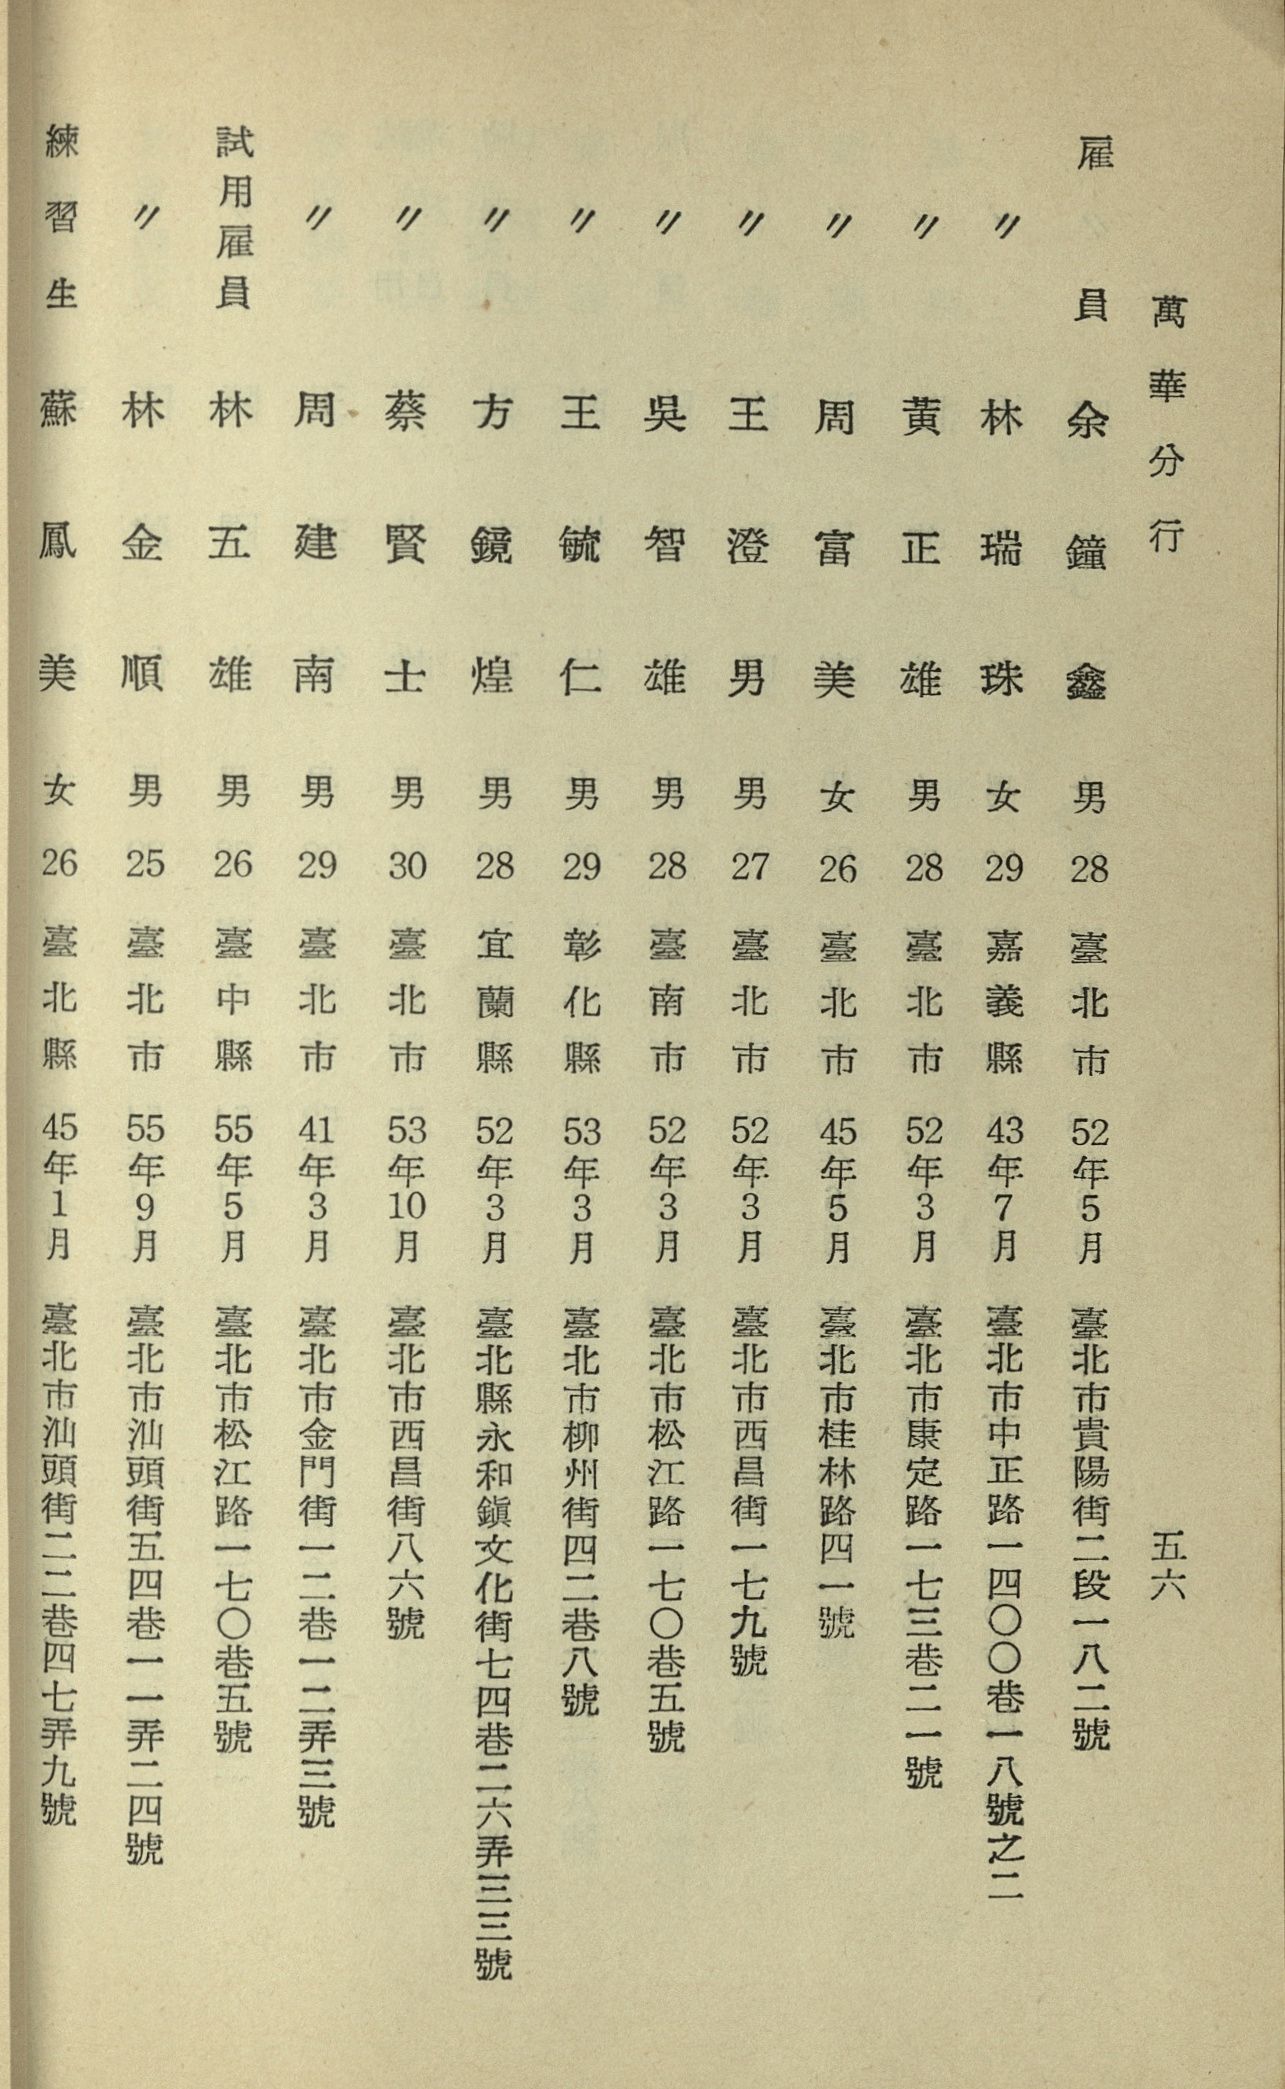 萬華分行　五六
雇員　余鐘鑫　男　28　臺北市　52年5月　臺北市貴陽街二段一八二號
〃　林瑞珠　女　29　嘉義縣　43年7月　臺北市中正路一四〇〇巷一八號之二
〃　黃正雄　男　28　臺北市　52年3月　臺北市康定路一七三巷二一號
〃　周富美　女　26　臺北市　45年5月　臺北市桂林路四一號
〃　王澄男　男　27　臺北市　52年3月　臺北市西昌街一七九號
〃　吳智雄　男　28　臺南市　52年3月　臺北市松江路一七〇巷五號
〃　王毓仁　男　29　彰化縣　53年3月　臺北市柳州街四二巷八號
〃　方鏡煌　男　28　宜蘭縣　52年3月　臺北縣永和鎮文化街七四巷二六弄三三號
〃　蔡賢士　男　30　臺北市　53年10月　臺北市西昌街八六號
〃　周建南　男　29　臺北市　41年3月　臺北市金門街一二巷一二弄三號
試用雇員　林五雄　男　26　臺中縣　55年5月　臺北市松江路一七〇巷五號
〃　林金順　男　25　臺北市　55年9月　臺北市汕頭街五四巷一一弄二四號
練習生　蘇鳳美　女　26　臺北縣　45年1月　臺北市汕頭街二二巷四七弄九號